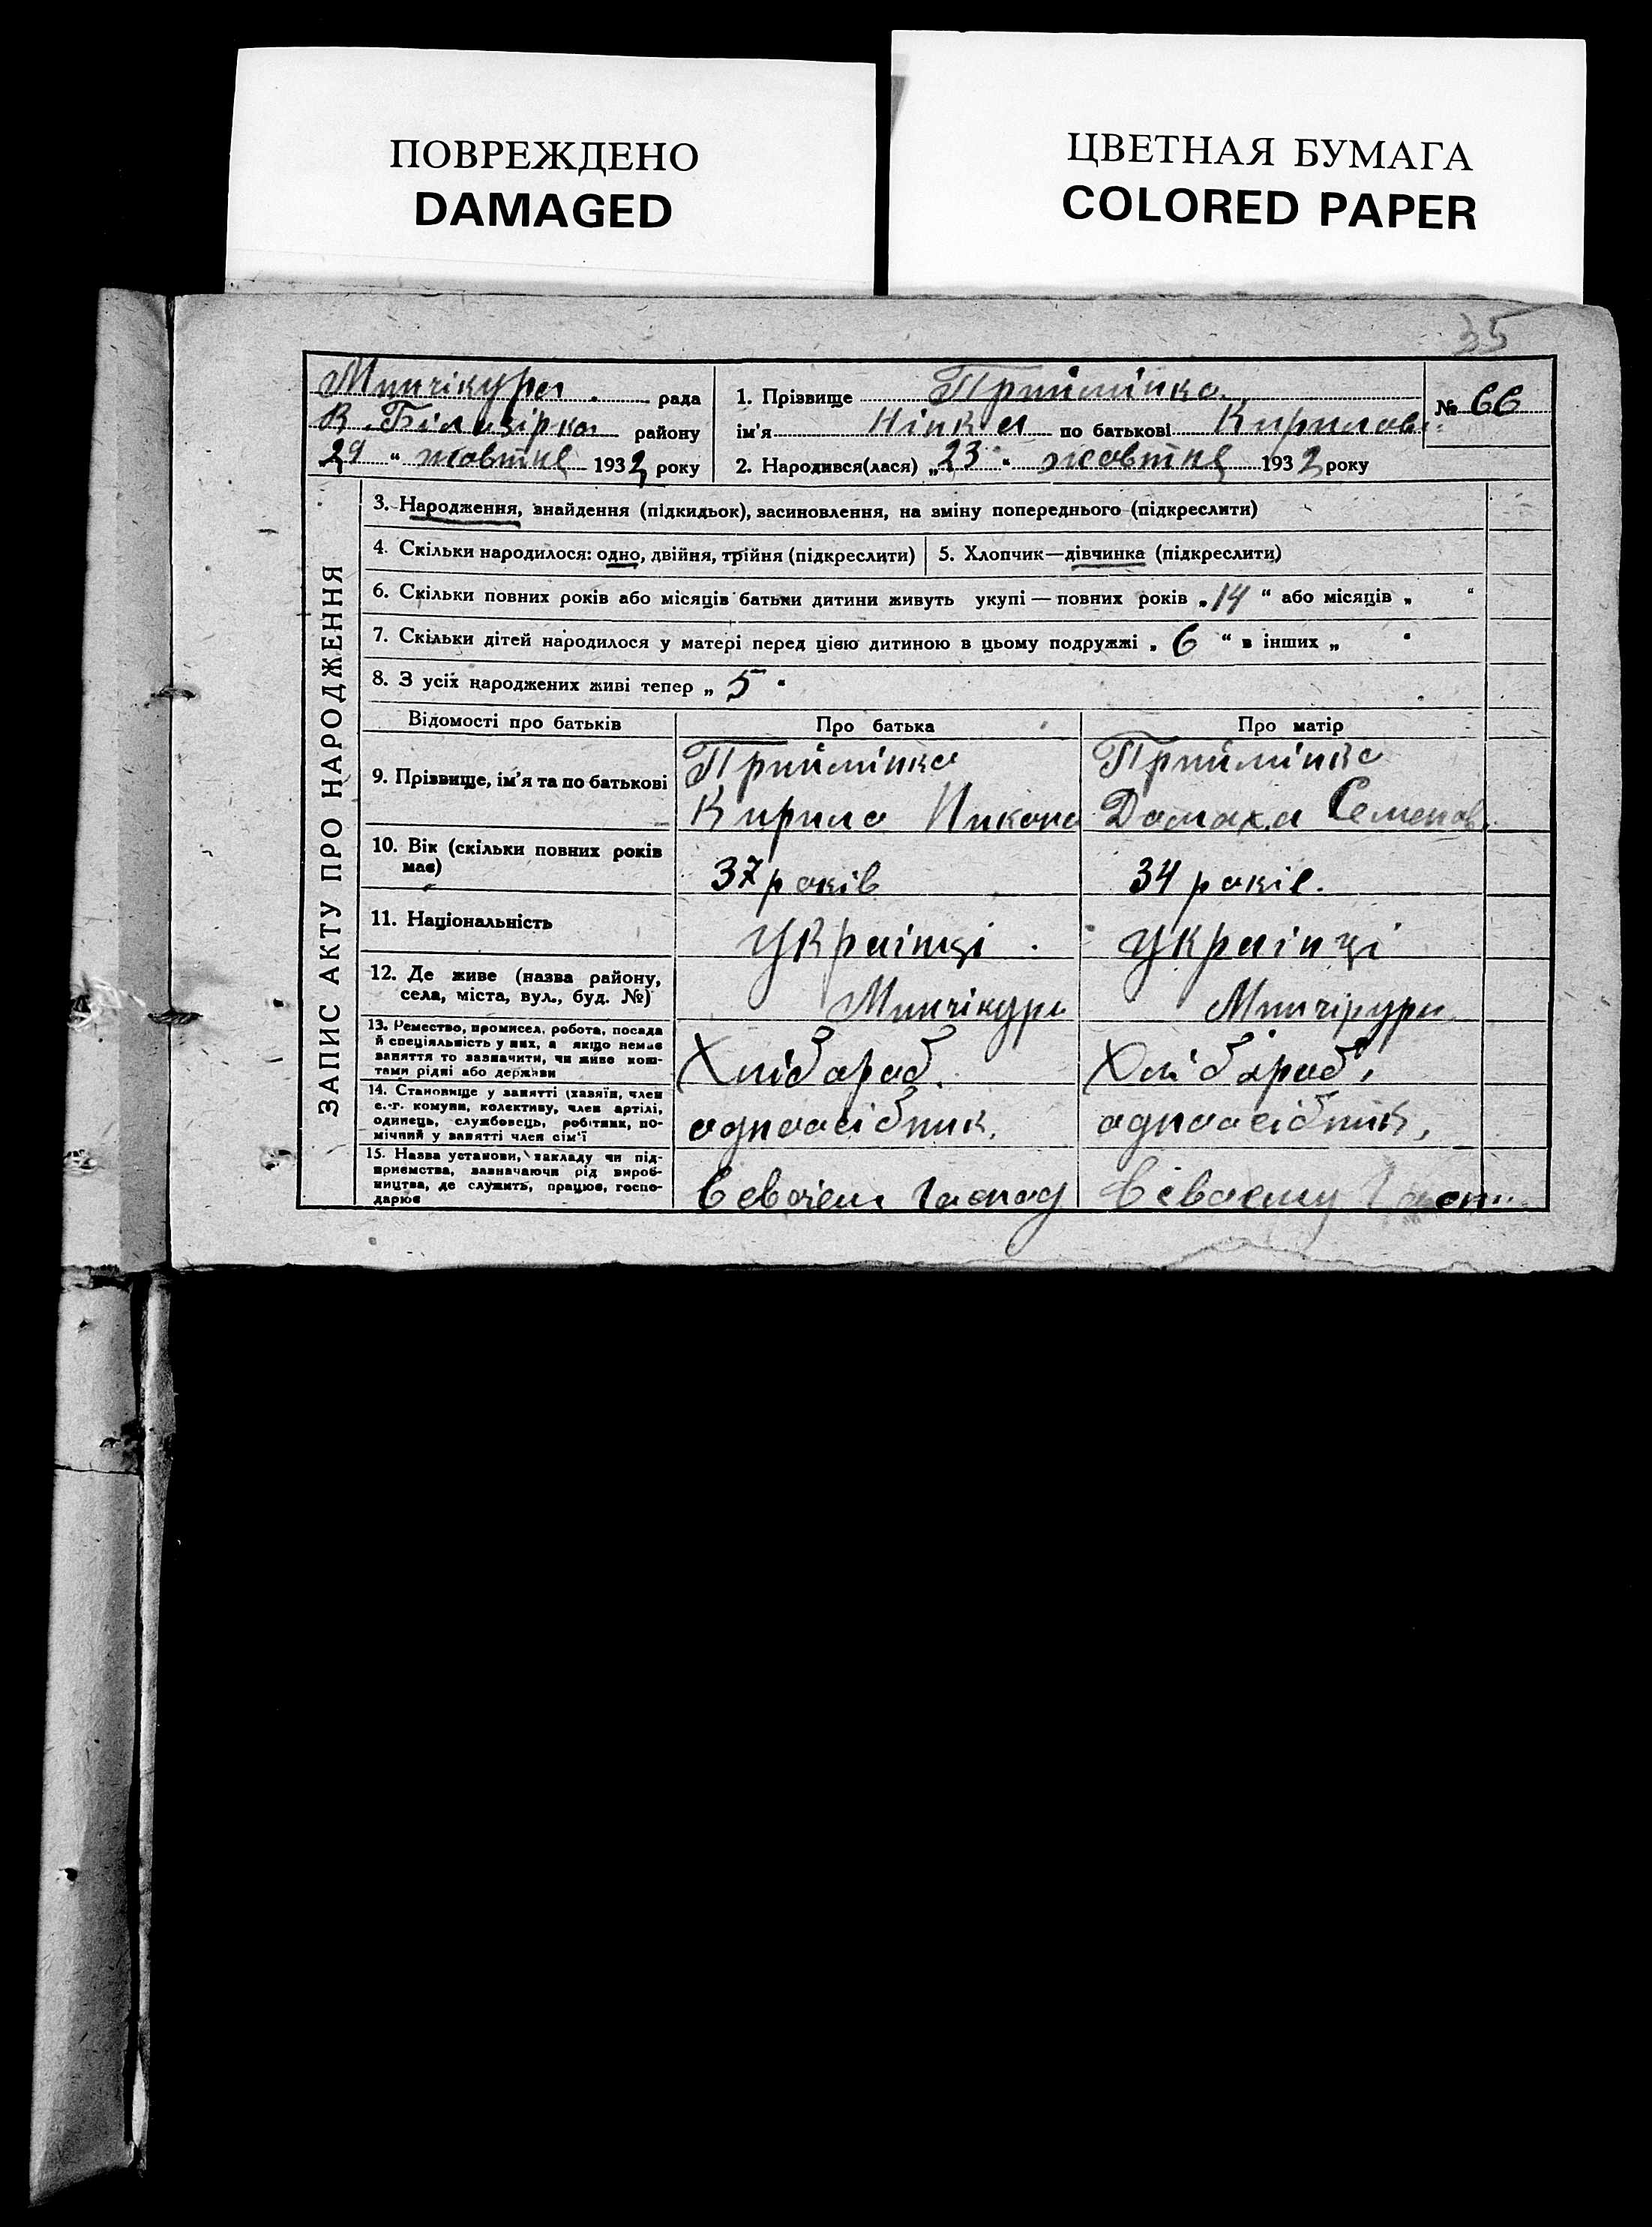 ПОВРЕЖДЕНО
DAMAGED
ЦВЕТНАЯ БУМАГА
COLORED PAPER
35
Мипчікура рада
В. Білазірка району
29 " жовтня 1932 року
1. Прізвище Прийміпко
ім'я Нінка по батькові Кирилов
№ 66
2. Народився(лася) „23 " жовтня 1932 року
ЗАПИС АКТУ ПРО НАРОДЖЕННЯ
3. Народження, знайдення (підкидьок), засиновлення, на зміну попереднього (підкреслити)
4. Скільки народилося: одно, двійня, трійня (підкреслити) 5. Хлопчик—дівчинка (підкреслити)
6. Скільки повних років або місяців батьки дитини живуть укупі — повних років „14 " або місяців „ "
7. Скільки дітей народилося у матері перед цією дитиною в цьому подружжі „ 6 " в інших „ "
8. З усіх народжених живі тепер „ 5 "
Відомості про батьків Про батька Про матір
9. Прізвище, ім'я та по батькові
Прийміпко
Кирило Никоно
Прийміпко
Домаха Семенов.
10. Вік (скільки повних років
має)
37 років
34 років.
11. Національність
Українці
Українці
12. Де живе (назва району,
села, міста, вул., буд. №)
Мипчікури
13. Ремество, промисел, робота, посада
й спеціяльність у них, а якщо немає
заняття то зазначити, чи живе кош-
тами рідні або держави
Хлібороб.
Хлібороб,
14. Становище у занятті (хазяїн, член
с.-г. комуни, колективу, член артілі,
одинець, службовець, робітник, по-
мічний у занятті член сім'ї
одноосібник.
одноосібник,
15. Назва установи, закладу чи під-
приємства, зазначаючи рід вироб-
ництва, де служить, працює, госпо-
дарює